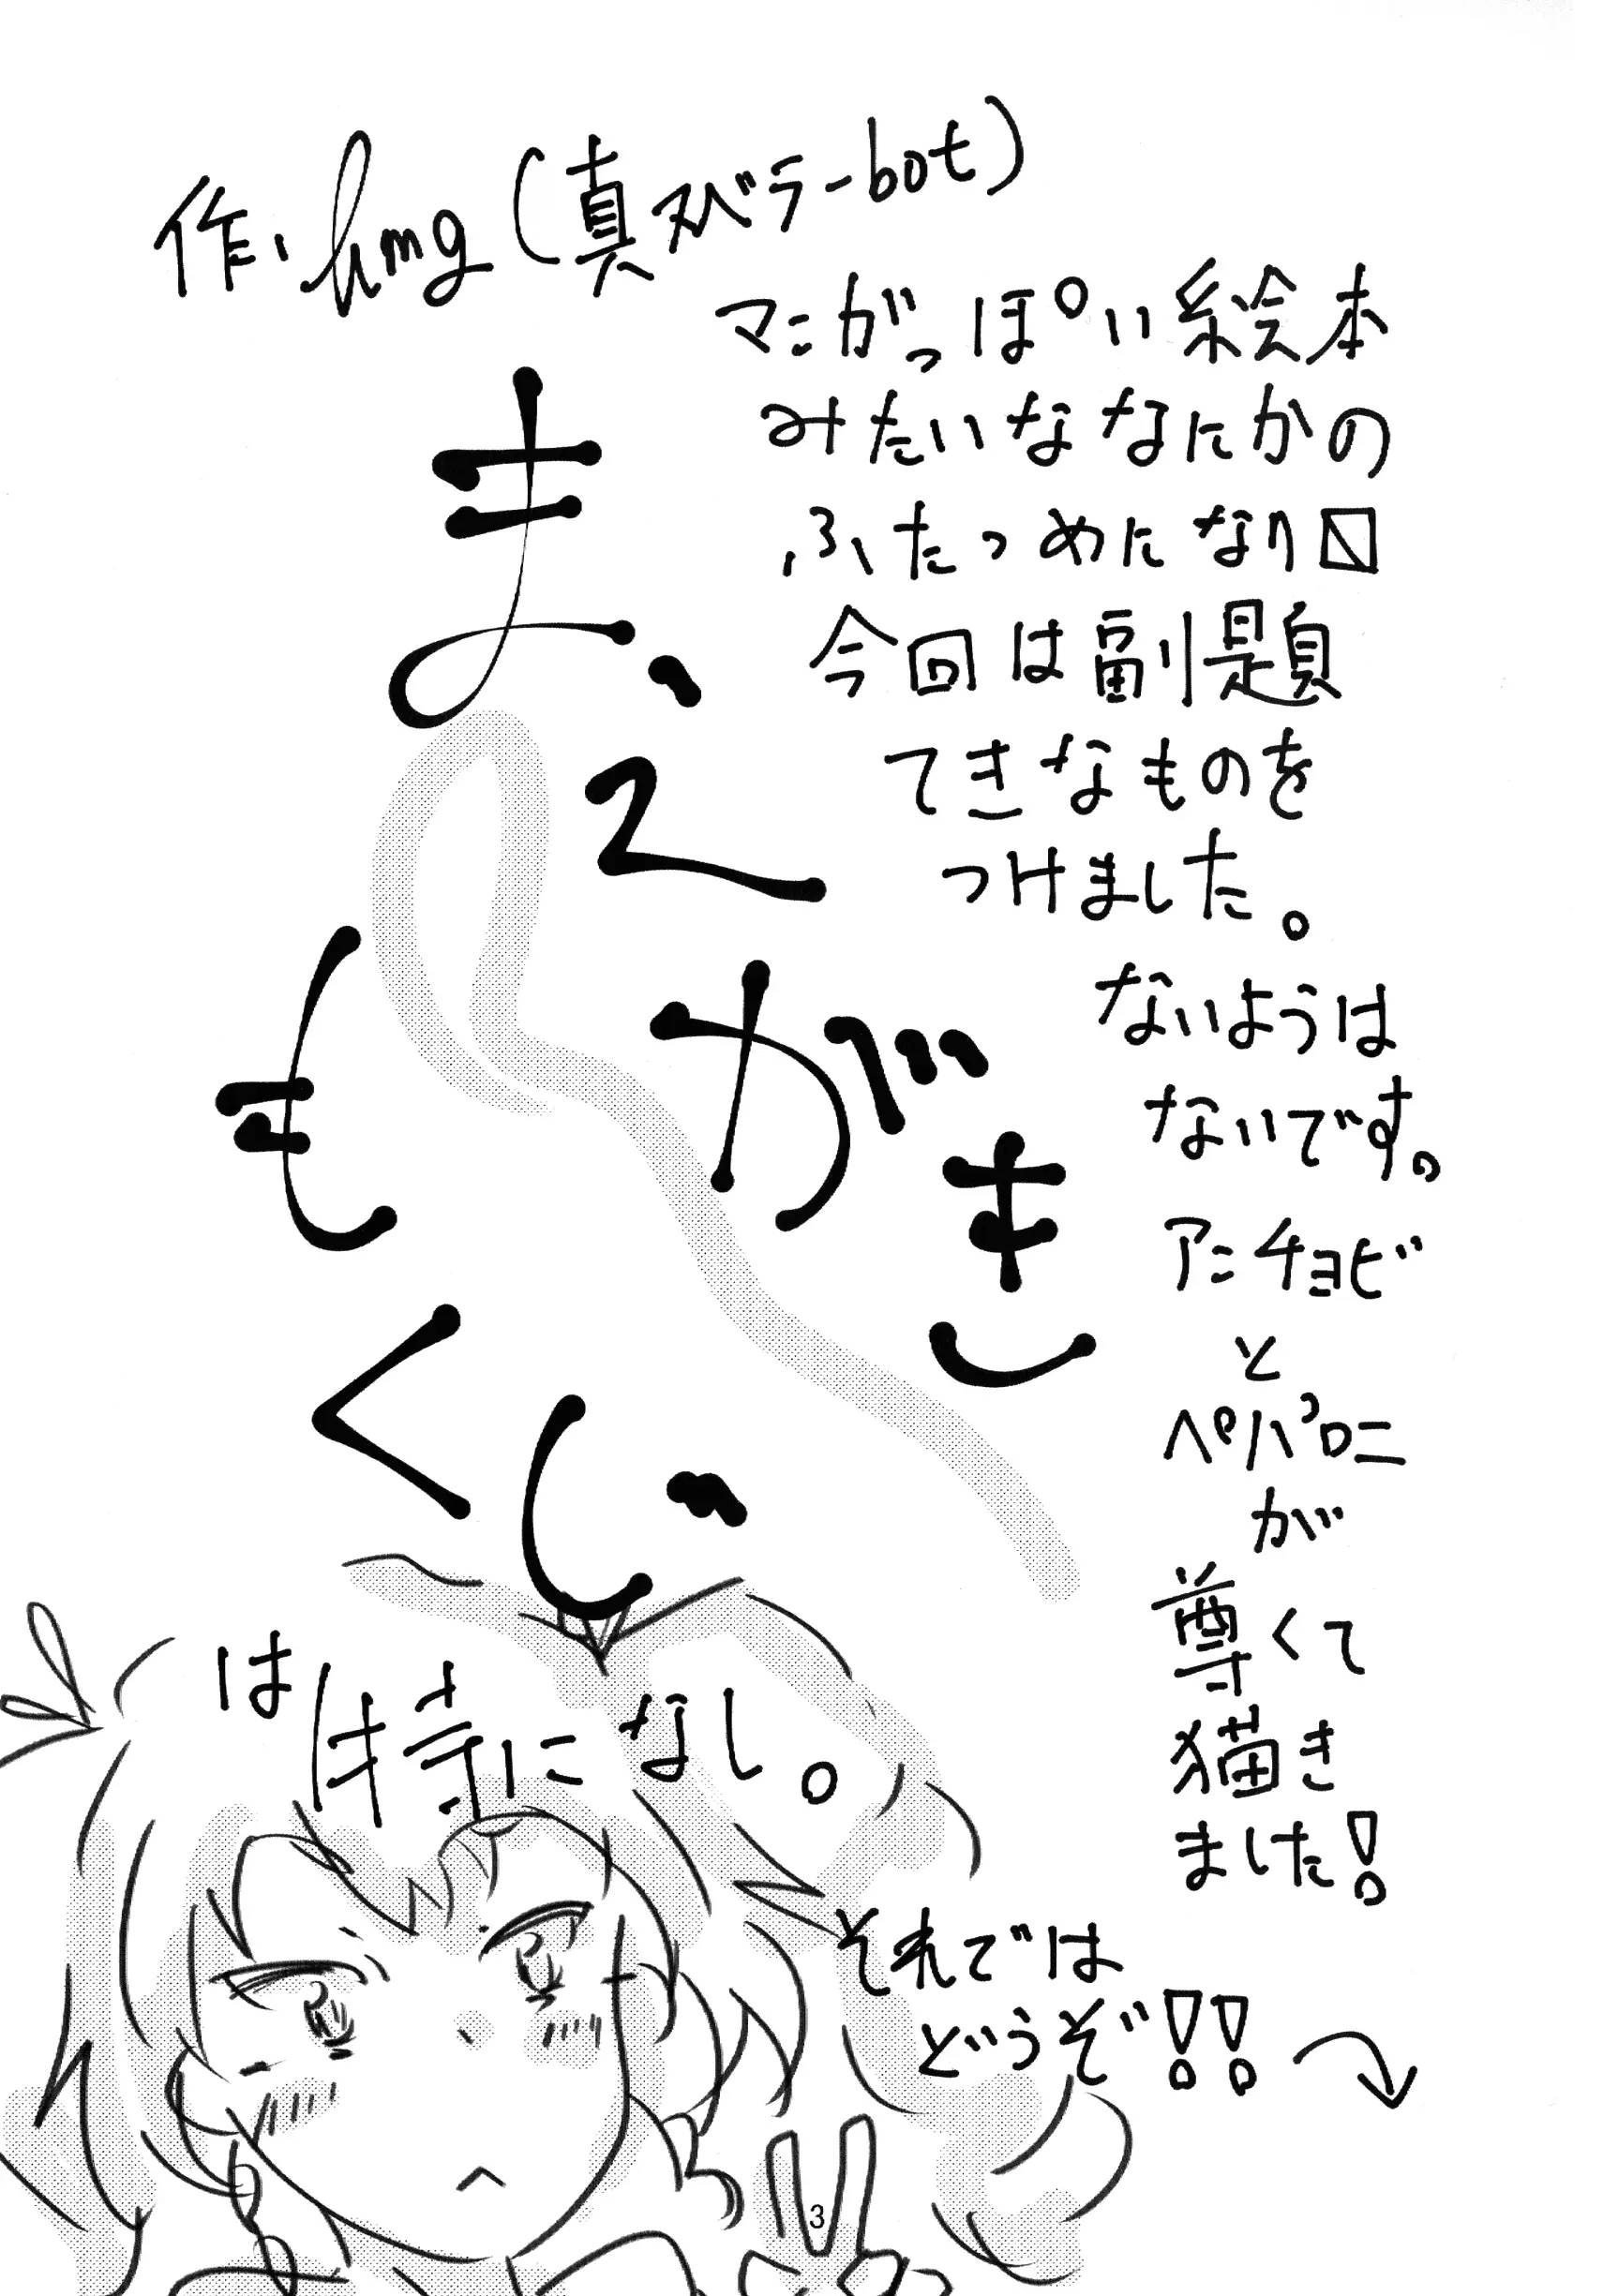 作、hmg(真ヌベラーbot)
マンがっぽい絵本
みたいななにかの
ふたつめになり〼
今回は副題
てきなものを
つけました。
ないようは
ないです。
アンチョビ
と
ペパロニ
が
尊くて
描き
ました!
ま、
え
がき
もくじ
は特になし。
それでは
どうぞ!!
3